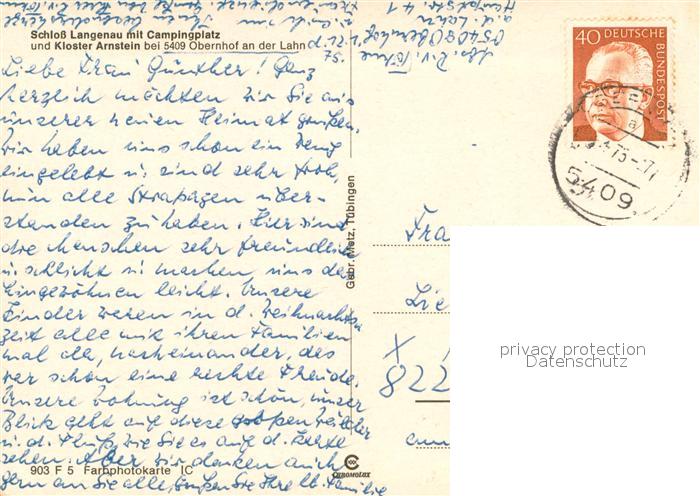 Schloß Langenau mit Campingplatz
und Kloster Arnstein bei 5409 Obernhof an der Lahn
Liebe Frau Günther! Ganz
herzlich möchten wir Sie aus
unserer neuen Heimat grüßen.
Wir haben uns schon ein wenig
eingelebt u. sind sehr froh,
nun alle Strapazen über-
standen zu haben. Hier sind
die Menschen sehr freundlich
u. schlicht u. machen uns das
Eingewöhnen leicht. Unsere
Kinder waren in d. Weihnachts
zeit alle mit ihren Familien
mal da, nacheinander, das
war schon eine rechte Freude.
Unsere Wohnung ist schön, unser
Blick geht auf diese
u. d. Fluß, wie Sie es auf d. Karte
sehen. Aber wir denken auch
gern an Sie alle, grüßen Sie Ihre lb. Familie
903 F 5 Farbphotokarte IC
Gebr. Metz, Tübingen
CHROMOLUX
40 DEUTSCHE
BUNDESPOST
a
5409
Fra
Lie
X
822
privacy protection
Datenschutz